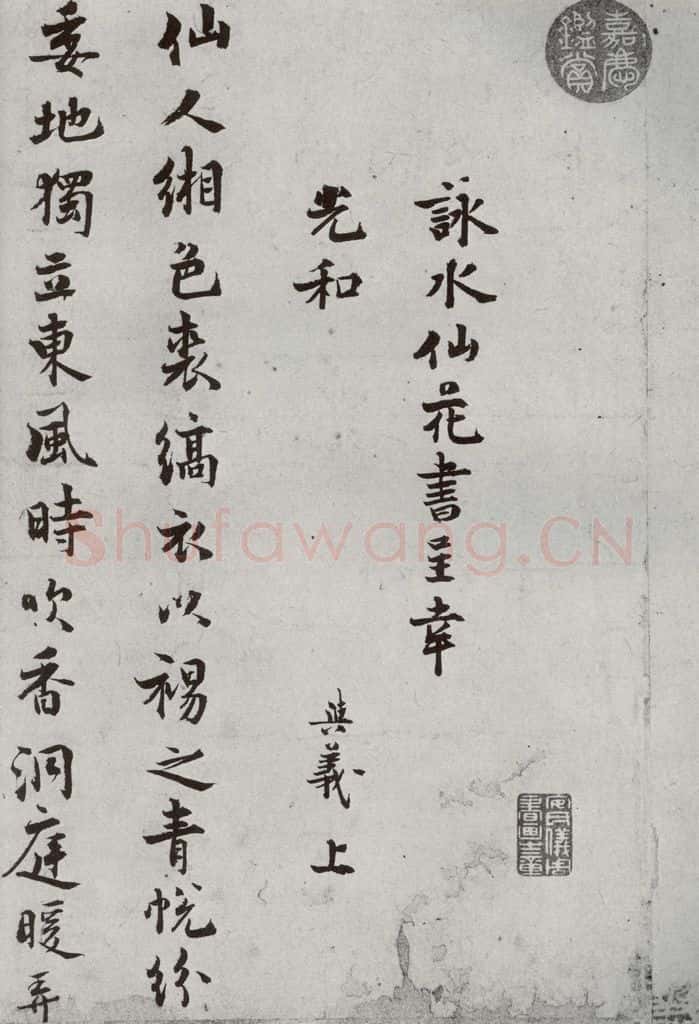 詠水仙花書呈幸
光和
與義上
仙人緗色裘縞衣以裼之青帨紛
委地獨立東風時吹香洞庭暖弄
嘉雋鑑賞
Shufawang.CN